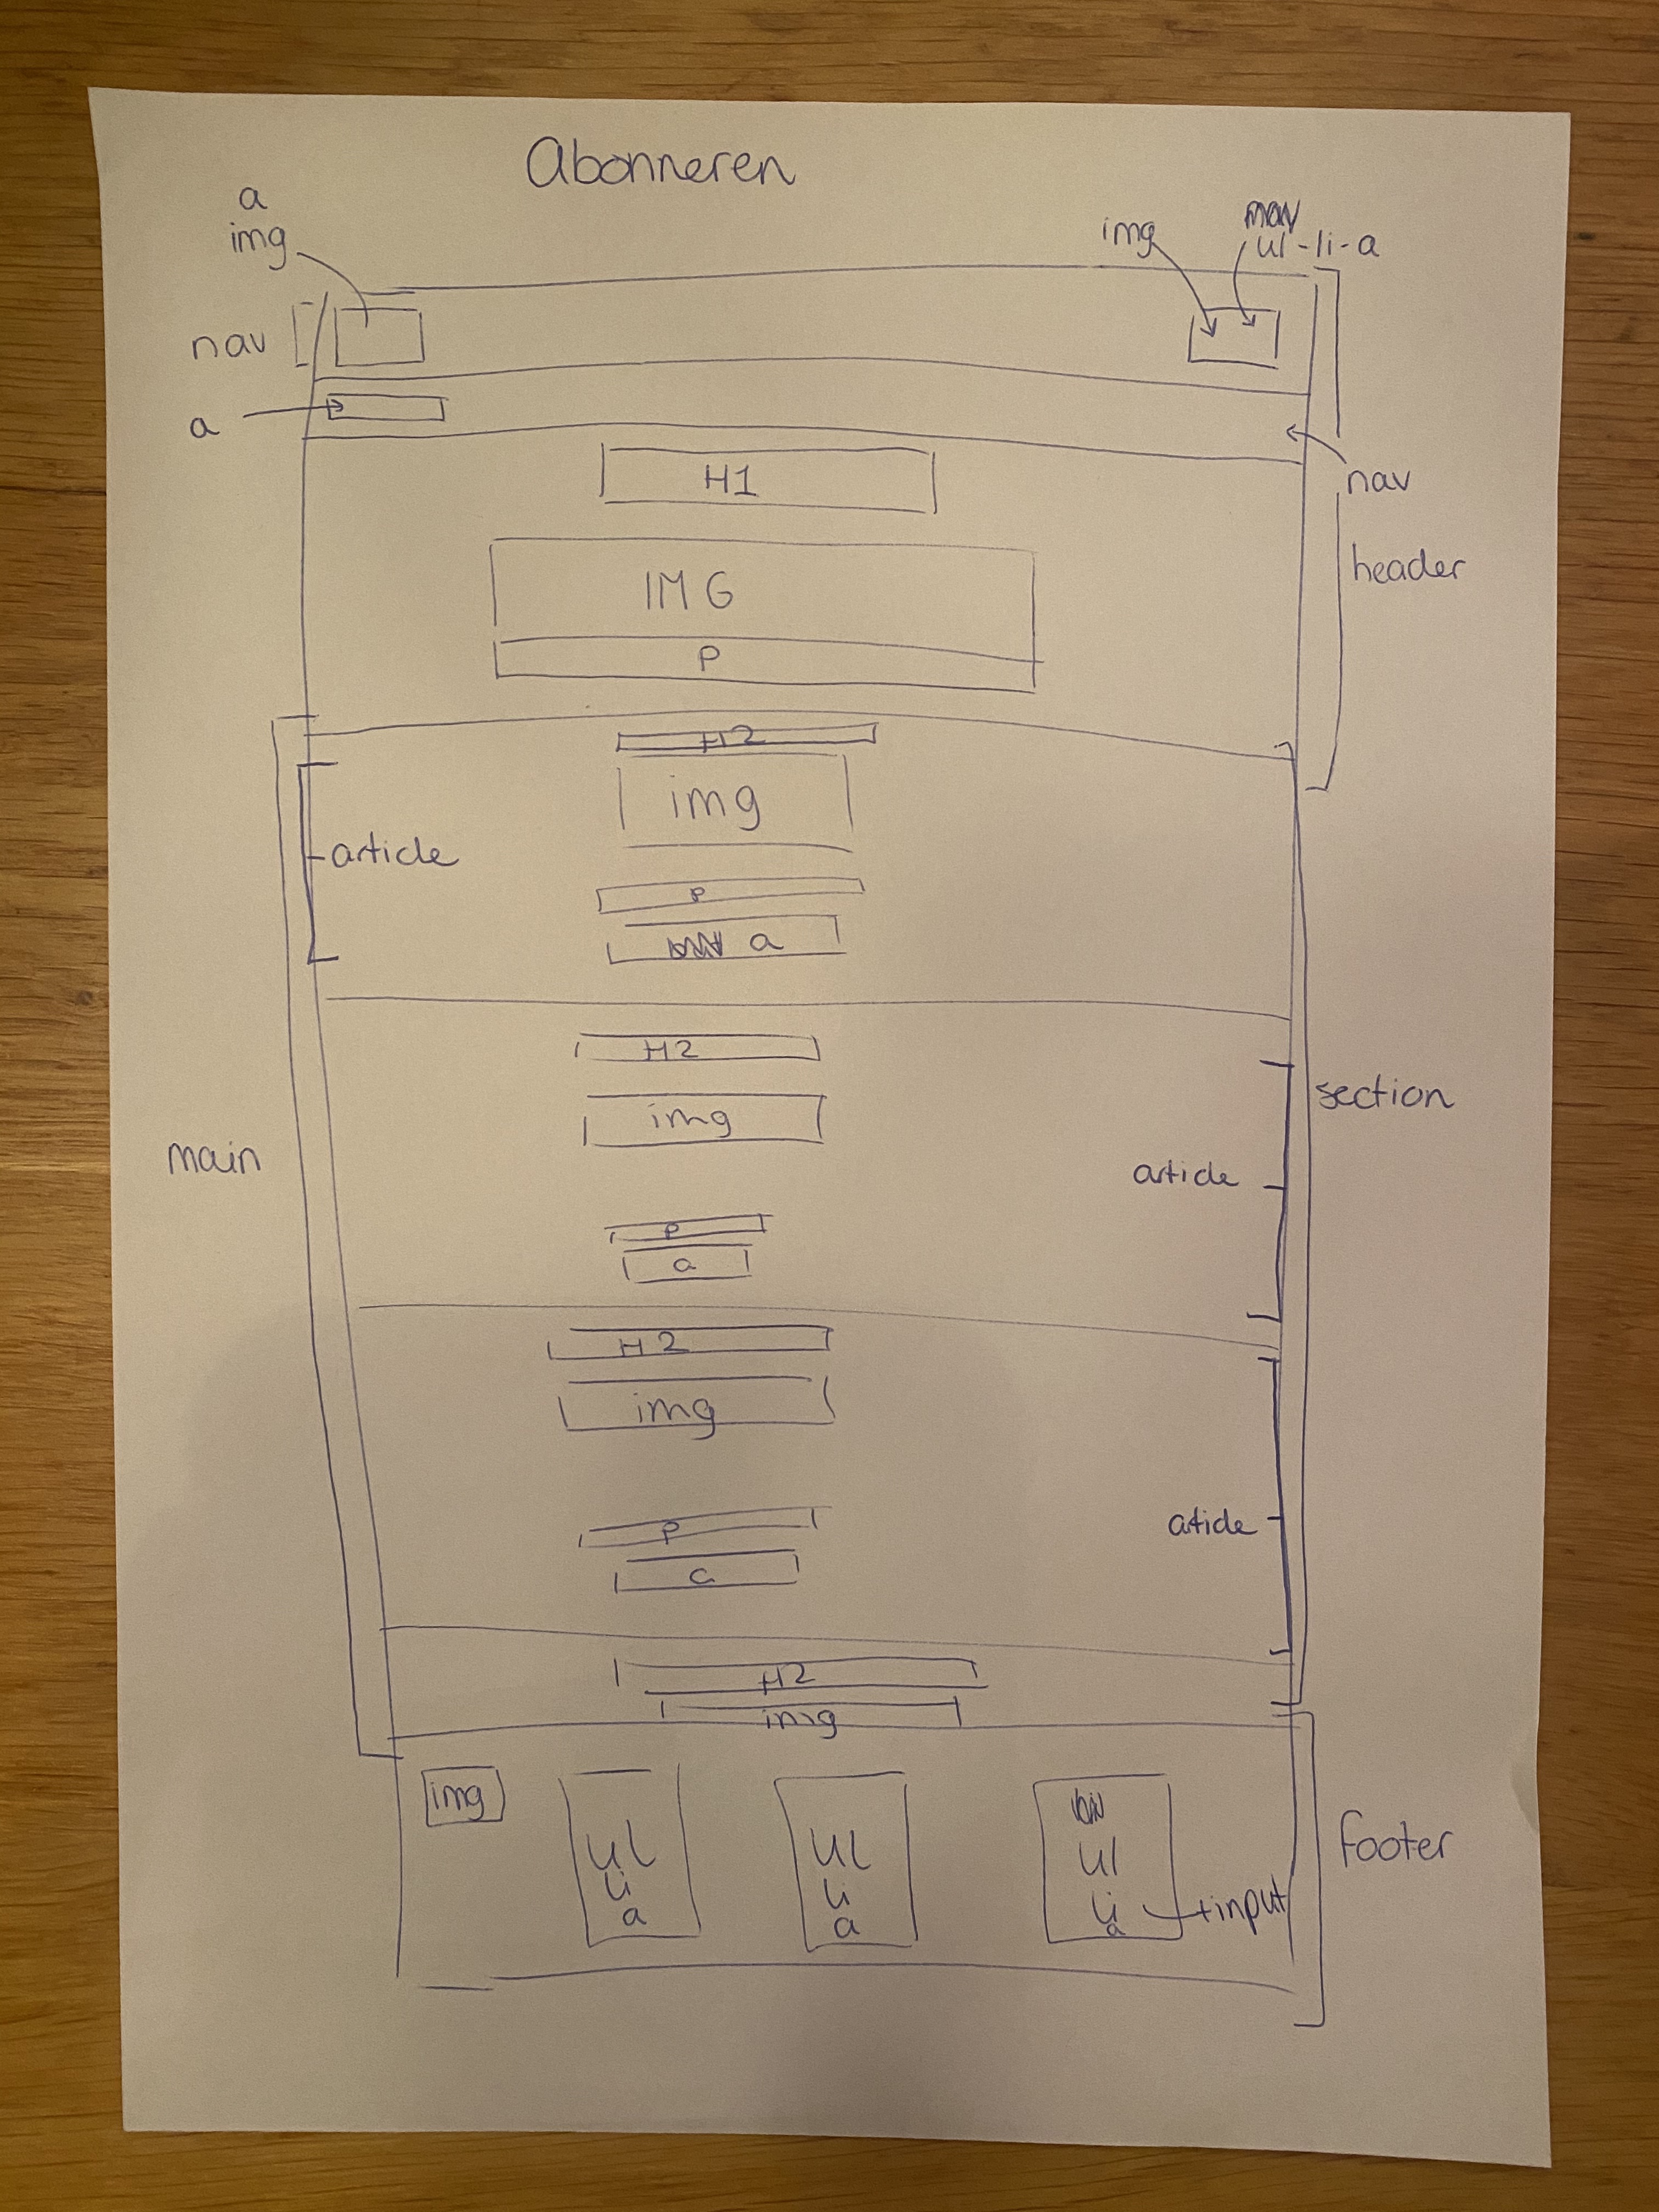 Abonneren
a
img
img
ul-li-a
nav
a
H1
nav
IMG
header
P
H2
img
article
P
a
H2
section
img
article
main
P
a
H2
img
aticle
P
a
H2
img
img
UL
Li
a
UL
Li
a
Ul
Li
a
+input
footer